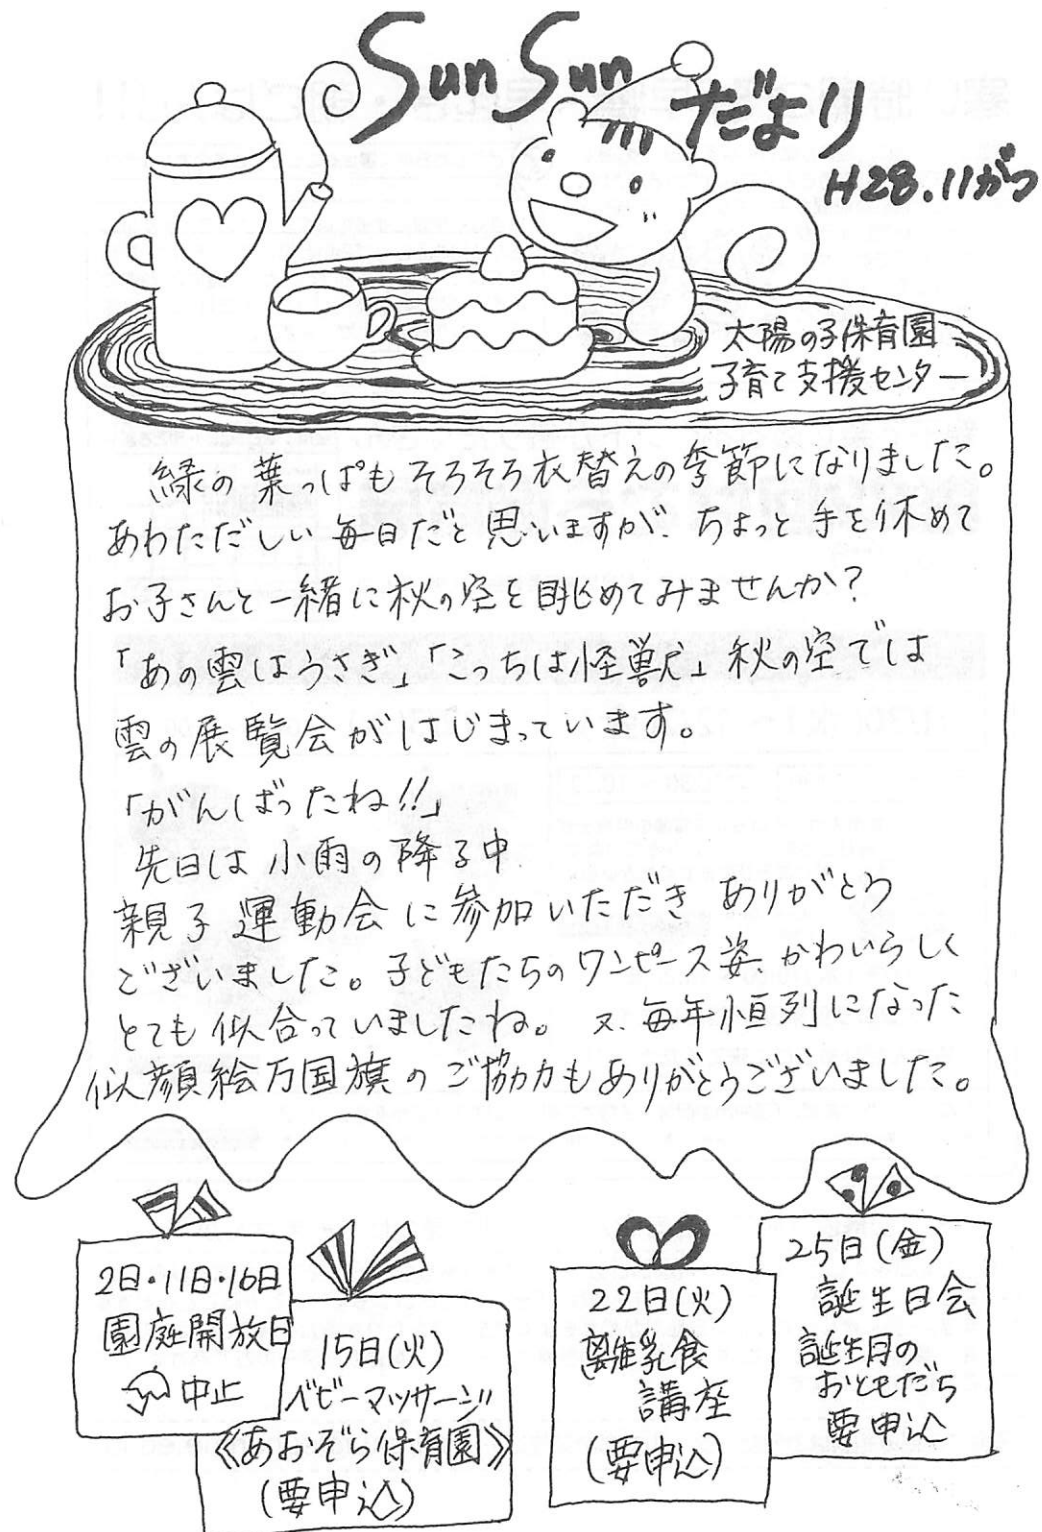 Sun Sun だより
H28.11がつ
太陽の子保育園
子育て支援センター
緑の葉っぱもそろそろ衣替えの季節になりました。
あわただしい毎日だと思いますが、ちょっと手を休めて
お子さんと一緒に秋の空を眺めてみませんか？
「あの雲はうさぎ」「こっちは怪獣」秋の空では
雲の展覧会がはじまっています。
「がんばったね!!」
先日は小雨の降る中
親子運動会に参加いただきありがとう
ございました。子どもたちのワンピース姿、かわいらしく
とても似合っていましたね。又、毎年恒列になった
似顔絵万国旗のご協力もありがとうございました。
2日・11日・16日
園庭開放日
中止
15日(火)
ベビーマッサージ
《あおぞら保育園》
(要申込)
22日(火)
離乳食
講座
(要申込)
25日(金)
誕生日会
誕生月の
おともだち
要申込